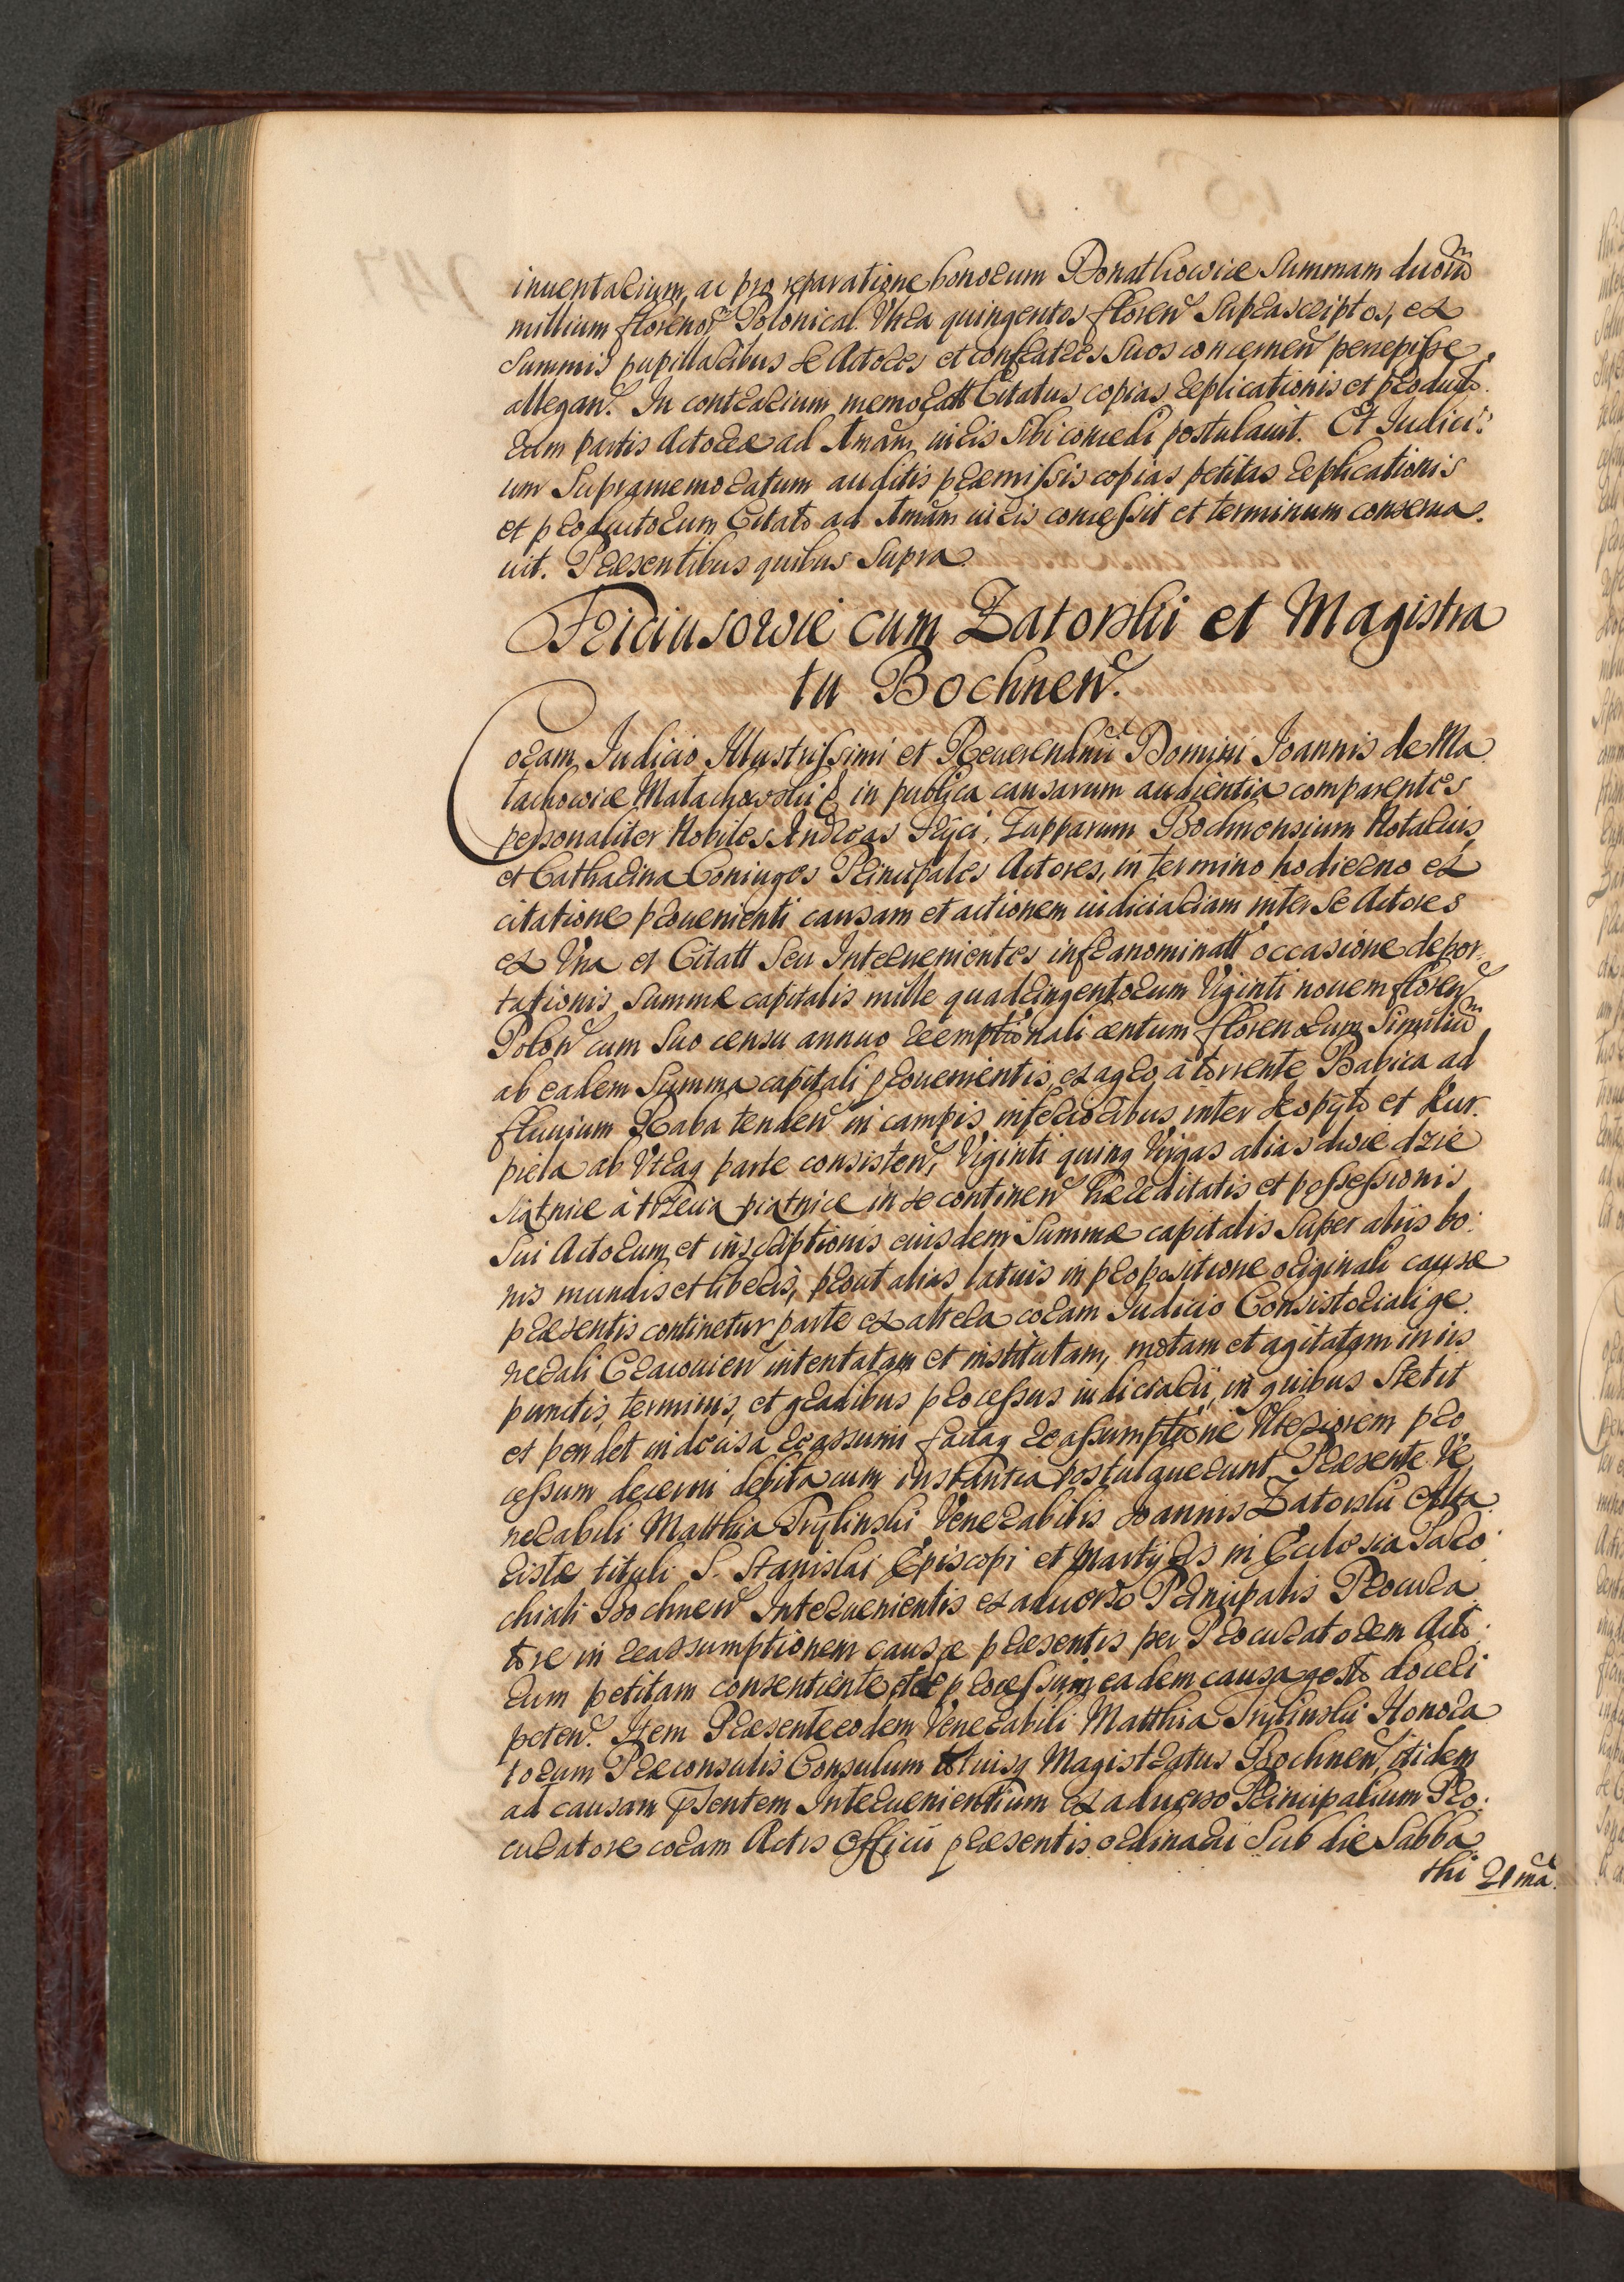 inuentarium, ac pro reparatione bonorum Bonathowice Summam duorũ
millium florenor Polonical. Vltra quingentos floren Suprascriptos, ex
Summis pupillaribus se Actores et confratres Suos concernen percepisse
allegan. In contrarium memoratt Citatus copias replicationis et producto
rum partis Actoreæ ad Amam iuris Sibi concedi postulauit. Et Iudici:
um Supramemoratum auditis præmissis copias petitas replicationis
et productorum Citato ad Amam iuris concessit et terminum conserua.
uit. Præsentibus quibus Supra
Friciusowie cum Zatorski et Magistra
tu Bochnen.
Coram Iudicio Illustrissimi et Reuerendmi Domini Ioannis de Ma
łachowice Małachowski & in publica causarum audientia comparentes
personaliter Nobiles Andreas Fryci, Zupparum Bochnensium Notarius,
et Catharina Coniuges Principales Actores, in termino hodierno ex
citatione prouenienti causam et actionem iudiciariam inter Se Actores
ex Vna et Citatt Seu Interuenientes infranominatt occasione depor
tationis Summæ capitalis mille quadringentorum Viginti nouem floren
Polon cum Suo censu annuo reemptionali centum florenorum Similiũ
ab eadem Summa capitali prouenientis, ex agro, à torrente Babica ad
fluuium Raba tenden in campis inferioribus inter Kopyto et Kur.
piela ab Vtraq parte consisten, Viginti quinq Virgas alias dwie dzie
siątnice à trzecia piatnice in se continen hæreditatis et possessionis
Sui Actorum et inscriptionis eiusdem Summæ capitalis Super aliis bo
nis mundis et liberis, prout alias latius in propositione originali causæ
præsentis continetur parte ex altera coram Iudicio Consistoriali ge.
nerali Cracouien intentatam et institutam, motam et agitatam in iis
punctis, terminis, et gradibus processus iudiciarii, in quibus Stetit
et pendet indecisa reassumi factaq reassumptione Vlteriorem pro
cessum decerni debita cum instantia postulauerunt Præsente Ve
nerabili Matthia Trylinski Venerabilis Ioannis Zatorski Alta
ristæ tituli S. Stanislai Episcopi et Martyris in Ecclesia Paro
chiali Bochnen Interuenientis ex aduerso Principalis Procura
tore in reassumptionem causæ præsentis per Procuratorem Acto
rum petitam consentiente et de processu in eadem causa gesto doceri
peten. Item Præsente eodem Venerabili Matthia Trylinski Honora
torum Præconsulis Consulum totiusq Magistratus Bochnen, itidem
ad causam pntem Interuenientium ex aduerso Principalium Pro.
curatore coram Actis Officii præsentis ordinarii Sub die Sabba
thi 21ma